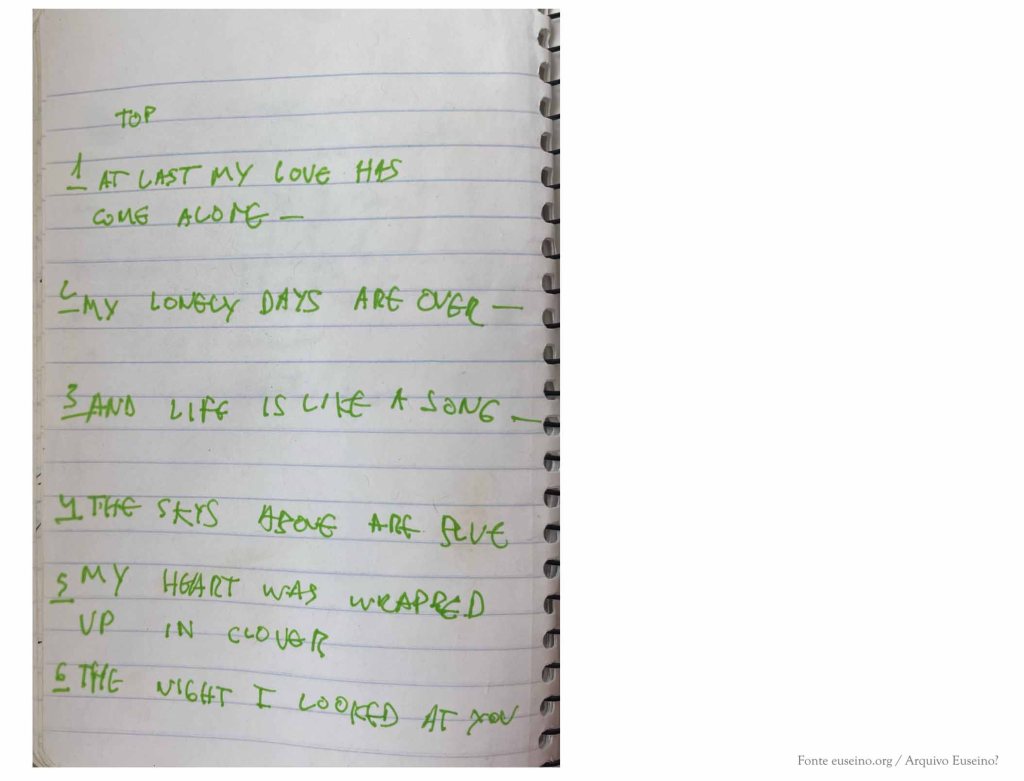 TOP
1 AT LAST MY LOVE HAS
COME ALONE —
2 MY LONELY DAYS ARE OVER —
3 AND LIFE IS LIKE A SONG —
4 THE SKYS ABOVE ARE BLUE
5 MY HEART WAS WRAPPED
UP IN CLOVER
6 THE NIGHT I LOOKED AT YOU
Fonte euseino.org / Arquivo Euseino?